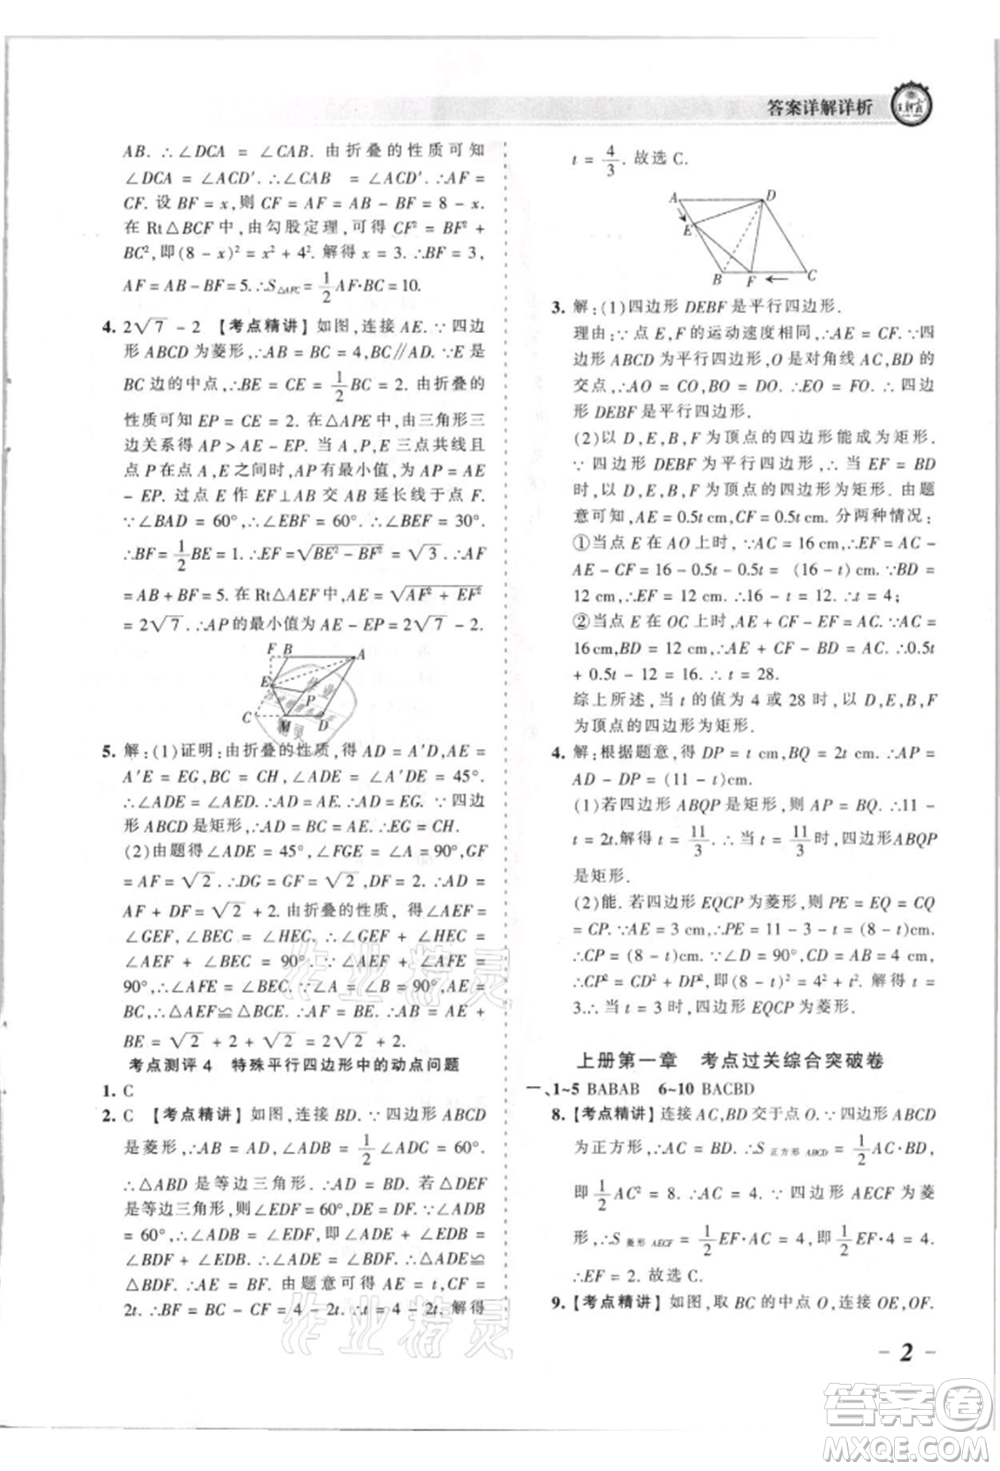 答案详解详析
王朝霞
AB. ∴∠DCA = ∠CAB. 由折叠的性质可知
∠DCA = ∠ACD′. ∴∠CAB = ∠ACD′. ∴AF =
CF. 设 BF = x, 则 CF = AF = AB - BF = 8 - x.
在 Rt△BCF 中, 由勾股定理, 可得 CF² = BF² +
BC², 即(8 - x)² = x² + 4². 解得 x = 3. ∴BF = 3,
AF = AB - BF = 5. ∴S△AFC = 1/2 AF·BC = 10.
4. 2√7 - 2 【考点精讲】如图, 连接 AE. ∵四边
形 ABCD 为菱形, ∴AB = BC = 4, BC∥AD. ∵E 是
BC 边的中点, ∴BE = CE = 1/2 BC = 2. 由折叠的
性质可知 EP = CE = 2. 在 △APE 中, 由三角形三
边关系得 AP > AE - EP. 当 A, P, E 三点共线且
点 P 在点 A, E 之间时, AP 有最小值, 为 AP = AE
- EP. 过点 E 作 EF⊥AB 交 AB 延长线于点 F.
∵∠BAD = 60°, ∴∠EBF = 60°. ∴∠BEF = 30°.
∴BF = 1/2 BE = 1. ∴EF = √(BE² - BF²) = √3. ∴AF
= AB + BF = 5. 在 Rt△AEF 中, AE = √(AF² + EF²)
= 2√7. ∴AP 的最小值为 AE - EP = 2√7 - 2.
F B A
E
P
C M D
5. 解:(1)证明:由折叠的性质, 得 AD = A′D, AE =
A′E = EG, BC = CH, ∠ADE = ∠A′DE = 45°.
∴∠ADE = ∠AED. ∴AD = AE. ∵四边形
ABCD 是矩形, ∴AD = BC = AE. ∴EG = CH.
(2)由题得 ∠ADE = 45°, ∠FGE = ∠A = 90°,
AF = √2, ∴DG = √2, DF = 2. ∴BC = AD =
AF + DF = √2 + 2. 由折叠的性质, 得 ∠AEF =
∠GEF, ∠BEC = ∠HEC, ∴∠GEF + ∠HEC =
90°, ∠AEF + ∠BEC = 90°. ∵∠AEF + ∠AFE =
90°, ∴∠AFE = ∠BEC. ∵∠A = ∠B = 90°, AE =
BC, ∴△AEF≌△BCE. ∴AF = BE. ∴AB = AE +
BE = √2 + 2 + √2 = 2√2 + 2.
考点测评 4 特殊平行四边形中的动点问题
1. C
2. C 【考点精讲】如图, 连接 BD. ∵四边形 ABCD
是菱形, ∴AB = AD, ∠ADB = 1/2∠ADC = 60°.
∴△ABD 是等边三角形. ∴AB = BD. 若 △DEF
是等边三角形, 则∠EDF = 60°, DE = DF. ∵∠ADB
= 60°, ∴∠ADB = ∠EDF, 即∠ADE + ∠EDB =
∠EDB + ∠BDF. ∴∠ADE = ∠BDF. ∴△ADE≌
△BDF. ∴AE = BF. 由题意可得 AE = t, CF =
2t, ∴BF = BC - CF = 4 - 2t. ∴t = 4 - 2t. 解得
t = 4/3. 故选 C.
A D
E
B F C
3. 解:(1)四边形 DEBF 是平行四边形.
理由:∵点 E, F 的运动速度相同, ∴AE = CF. ∵四
边形 ABCD 为平行四边形, O 为对角线 AC, BD 的
交点, ∴AO = CO, BO = DO. ∴EO = FO. ∴四边
形 DEBF 是平行四边形.
(2)以 D, E, B, F 为顶点的四边形能成为矩形.
∵四边形 DEBF 为平行四边形, ∴当 EF = BD
时, 以 D, E, B, F 为顶点的四边形为矩形. 由题
意可知, AE = 0.5t cm = 0.5t cm. 分两种情况:
①当点 E 在 AO 上时, ∵AC = 16 cm, ∴EF = AC -
AE - CF = 16 - 0.5t - 0.5t = (16 - t) cm. ∵BD =
12 cm, EF = BD, ∴16 - t = 12. ∴t = 4;
②当点 E 在 OC 上时, ∴EF = AE + CF - AC. ∵AC =
16 cm, BD = 12 cm, ∴AE + CF - AC = BD. ∴0.5t
+ 0.5t - 16 = 12. ∴t = 28.
综上所述, 当 t 的值为 4 或 28 时, 以 D, E, B, F
为顶点的四边形为矩形.
4. 解:根据题意, 得 DP = t cm, BQ = 2t cm, ∴AP =
AD - DP = (11 - t)cm.
(1)若四边形 ABQP 是矩形, 则 AP = BQ. ∴11 -
t = 2t. 解得 t = 11/3. ∴当 t = 11/3 时, 四边形 ABQP
是矩形.
(2)能. 若四边形 EQCP 为菱形, 则 PE = EQ = CQ
= CP = (8 - t)cm. ∵PE = 11 - 3 - t = (8 - t)cm,
∴CP = (8 - t)cm. ∵CP² = CD² + DP², 即(8 - t)² = 4² + t². 解得 t
= 3. ∴当 t = 3 时, 四边形 EQCP 为菱形.
上册第一章 考点过关综合突破卷
一、1~5 BABAB 6~10 BACBD
8. 【考点精讲】连接 AC, BD 交于点 O. ∵四边形 ABCD
为正方形, ∴AC = BD. ∴S正方形 ABCD = 1/2 AC·BD,
即 1/2 AC² = 18. ∴AC = 6. ∵四边形 AECF 为菱
形, ∴S菱形 AECF = 1/2 EF·AC = 6, 即 1/2 EF·6 = 6.
∴EF = 2. 故选 C.
9. 【考点精讲】如图, 取 BC 的中点 O, 连接 OE, OF.
- 2 -
作业精灵
作业精灵
答案圈
MXQE.COM